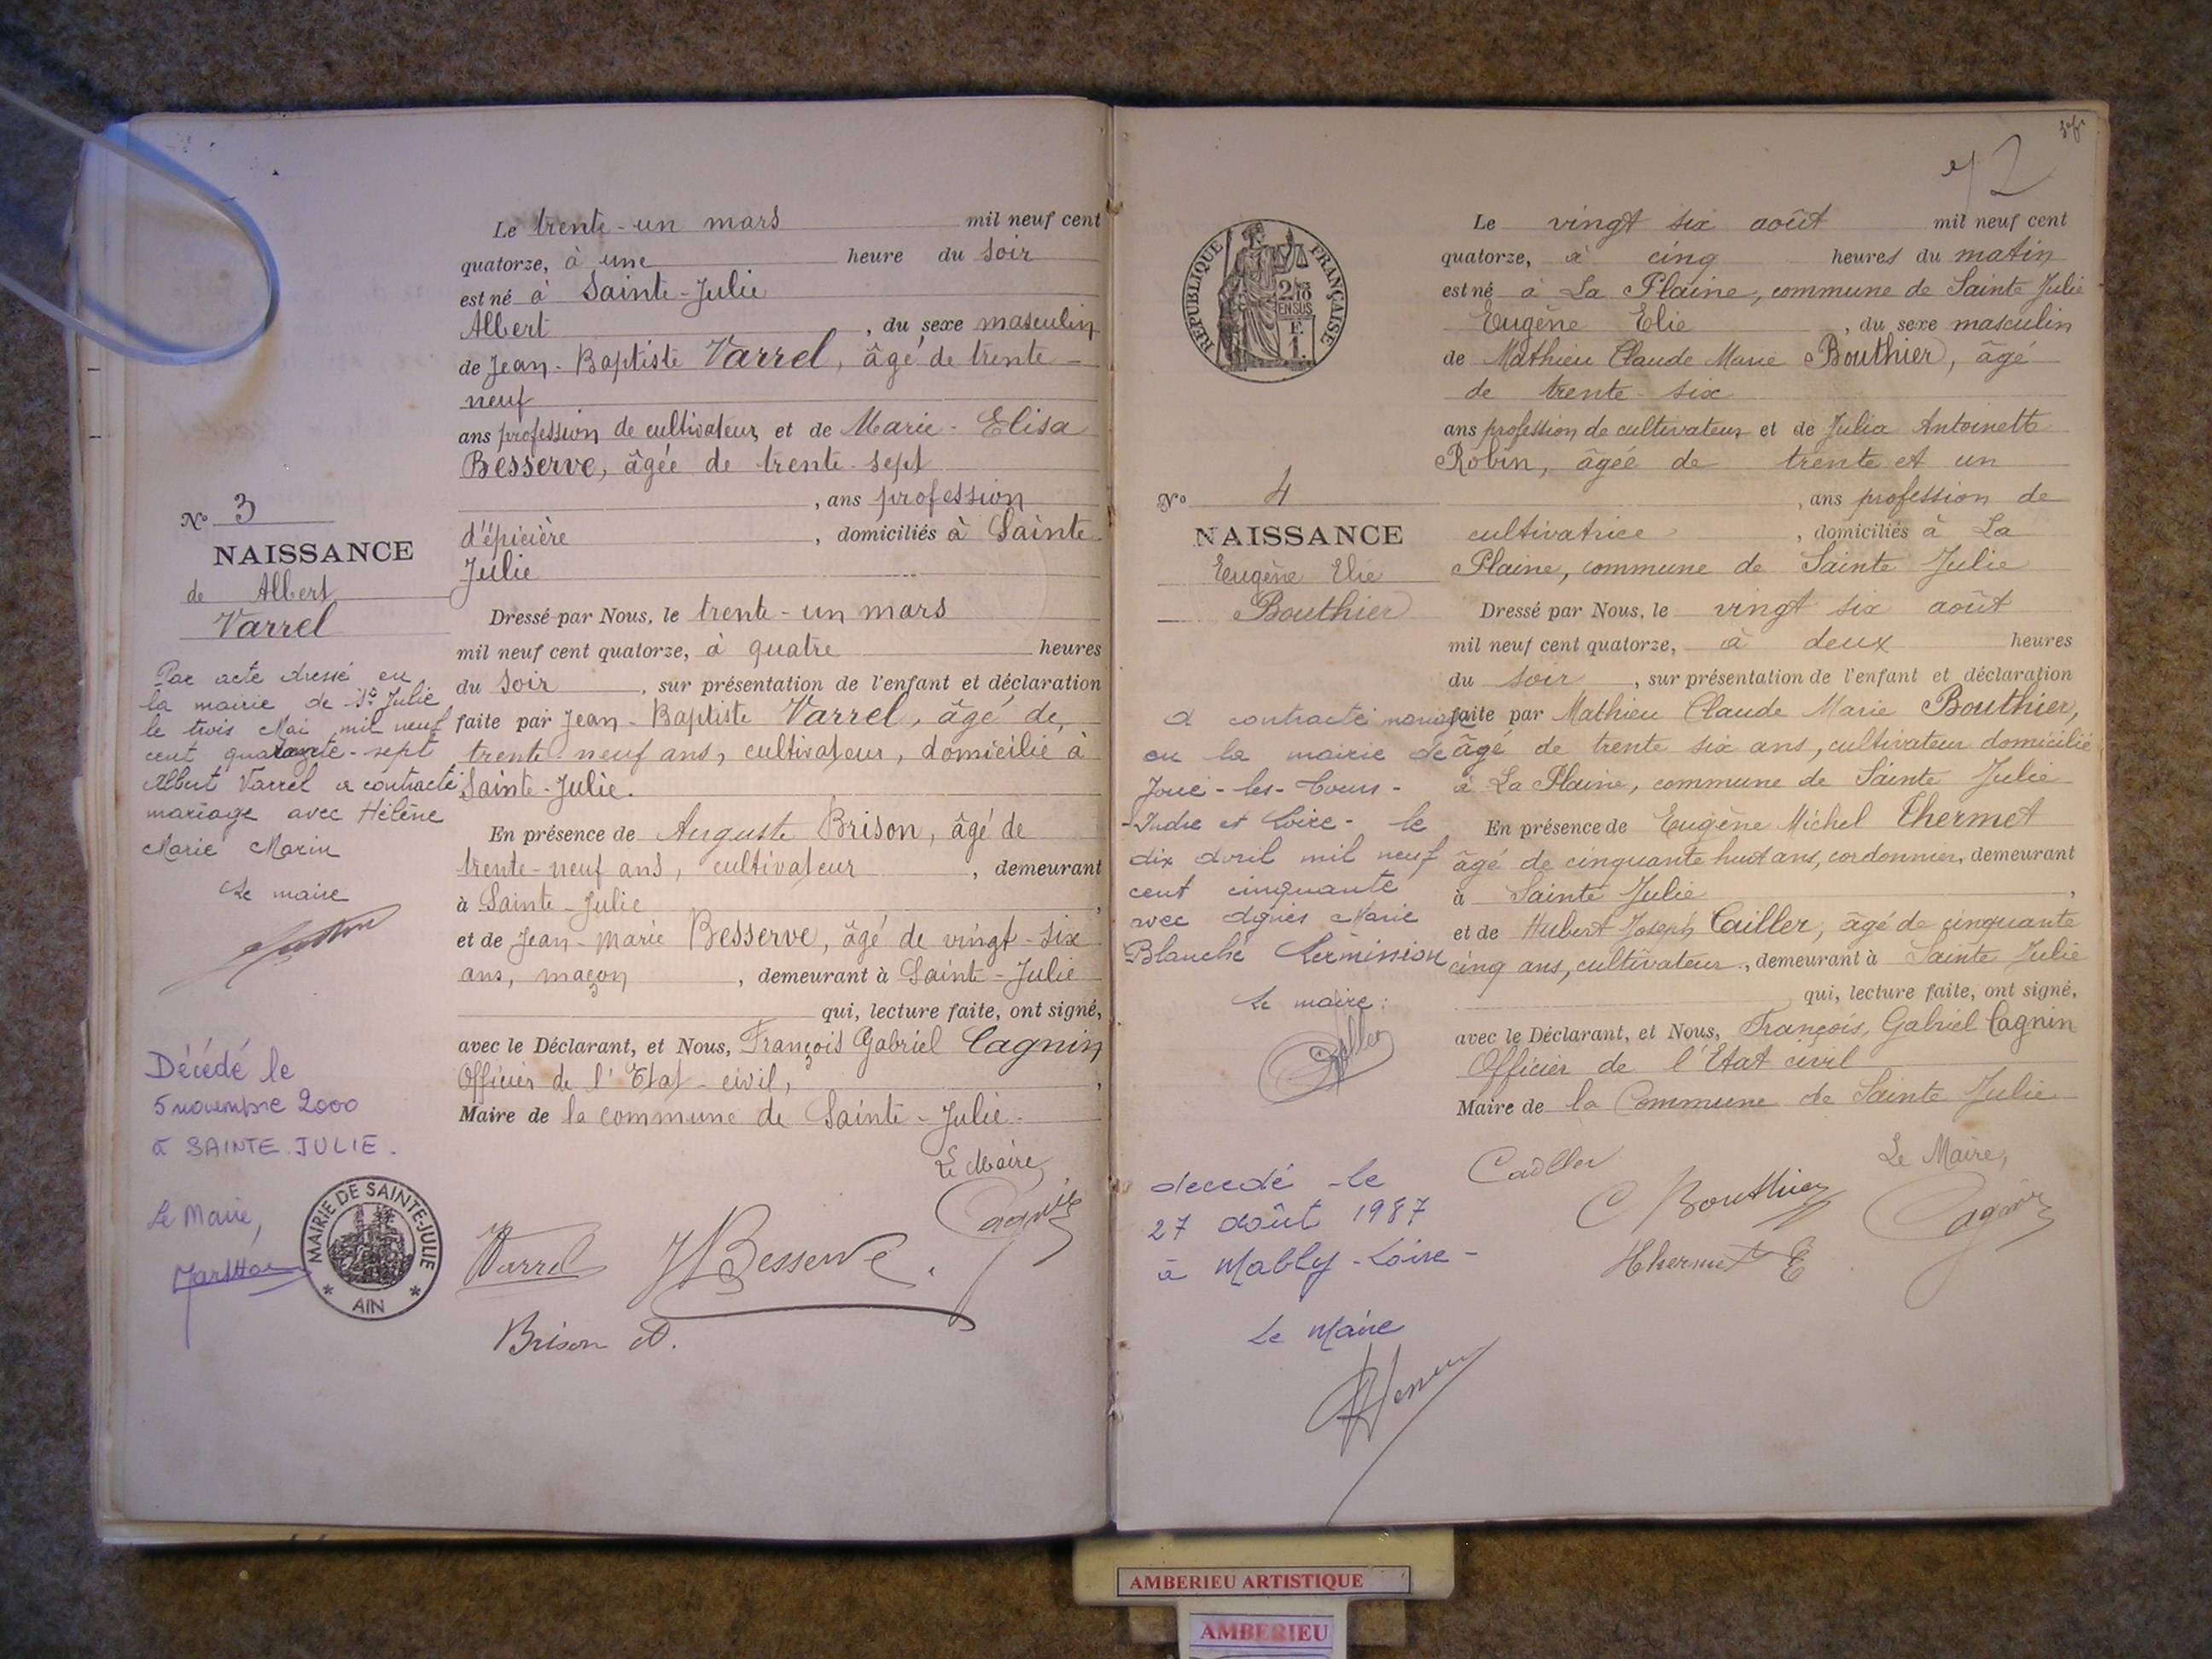 Le trente-un mars mil neuf cent
quatorze, à une heure du soir
est né à Sainte-Julie
Albert, du sexe masculin
de Jean-Baptiste Varrel, âgé de trente-
neuf
ans profession de cultivateur et de Marie-Elisa
Besserve, âgée de trente-sept
, ans profession
d'épicière, domiciliés à Sainte-
Julie
Dressé par Nous, le trente-un mars
mil neuf cent quatorze, à quatre heures
du soir, sur présentation de l'enfant et déclaration
faite par Jean-Baptiste Varrel, âgé de
trente-neuf ans, cultivateur, domicilié à
Sainte-Julie.
En présence de Auguste Brison, âgé de
trente-neuf ans, cultivateur, demeurant
à Sainte-Julie,
et de Jean-Marie Besserve, âgé de vingt-six
ans, maçon, demeurant à Sainte-Julie
qui, lecture faite, ont signé,
avec le Déclarant, et Nous, François Gabriel Cagnin
Officier de l'Etat-civil,
Maire de la commune de Sainte-Julie.
Le Maire,
Varrel
J Besserve.
Cagnin
Brison A.
No 3
NAISSANCE
de Albert
Varrel
Par acte dressé en
la mairie de Ste Julie
le trois Mai mil neuf
cent quarante-sept
Albert Varrel a contracté
mariage avec Hélène
Marie Marin
Le maire
Décédé le
5 novembre 2000
à SAINTE JULIE.
Le Maire,
MAIRIE DE SAINTE-JULIE
* AIN *
72
REPUBLIQUE FRANÇAISE
2/10
EN SUS
F.
1.
Le vingt six août mil neuf cent
quatorze, à cinq heures du matin
est né à La Plaine, commune de Sainte Julie
Eugène Elie, du sexe masculin
de Mathieu Claude Marie Bouthier, âgé
de trente-six
ans profession de cultivateur et de Julia Antoinette
Robin, âgée de trente et un
, ans profession de
cultivatrice, domiciliés à La
Plaine, commune de Sainte Julie
Dressé par Nous, le vingt six août
mil neuf cent quatorze, à deux heures
du soir, sur présentation de l'enfant et déclaration
faite par Mathieu Claude Marie Bouthier,
âgé de trente six ans, cultivateur domicilié
à La Plaine, commune de Sainte Julie
En présence de Eugène Michel Thermet
âgé de cinquante huit ans, cordonnier, demeurant
à Sainte Julie,
et de Hubert Joseph Cailler, âgé de cinquante
cinq ans, cultivateur, demeurant à Sainte Julie
qui, lecture faite, ont signé,
avec le Déclarant, et Nous, François, Gabriel Cagnin
Officier de l'Etat civil
Maire de la Commune de Sainte Julie
Le Maire,
C Bouthier
Cagnin
No 4
NAISSANCE
Eugène Elie
Bouthier
a contracté mariage
en la mairie de
Joué-les-Tours-
-Indre et Loire- le
dix avril mil neuf
cent cinquante
avec Agnès Marie
Blanche
Le maire:
decedé le
27 août 1987
à Mably-Loire-
Le Maire
AMBERIEU ARTISTIQUE
AMBERIEU